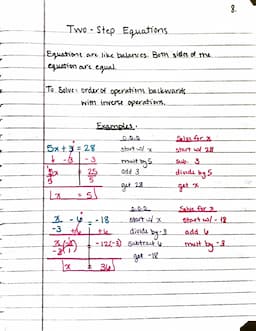 8.
Two-Step Equations
Equations are like balances. Both sides of the
equation are equal.
To Solve: order of operations backwards
with inverse operations.
Examples:
O.O.O Solve for x
5x + 3 = 28 start w/ x start w/ 28
-3 -3 mult by 5 sub. 3
5x = 25 add 3 divide by 5
5 5 get 28 get x
x = 5
O.O.O Solve for x
x - 6 = -18 start w/ x start w/ -18
-3 +6 +6 divide by -3 add 6
-12(-3) subtract 6 mult by -3
get -18
x = 36